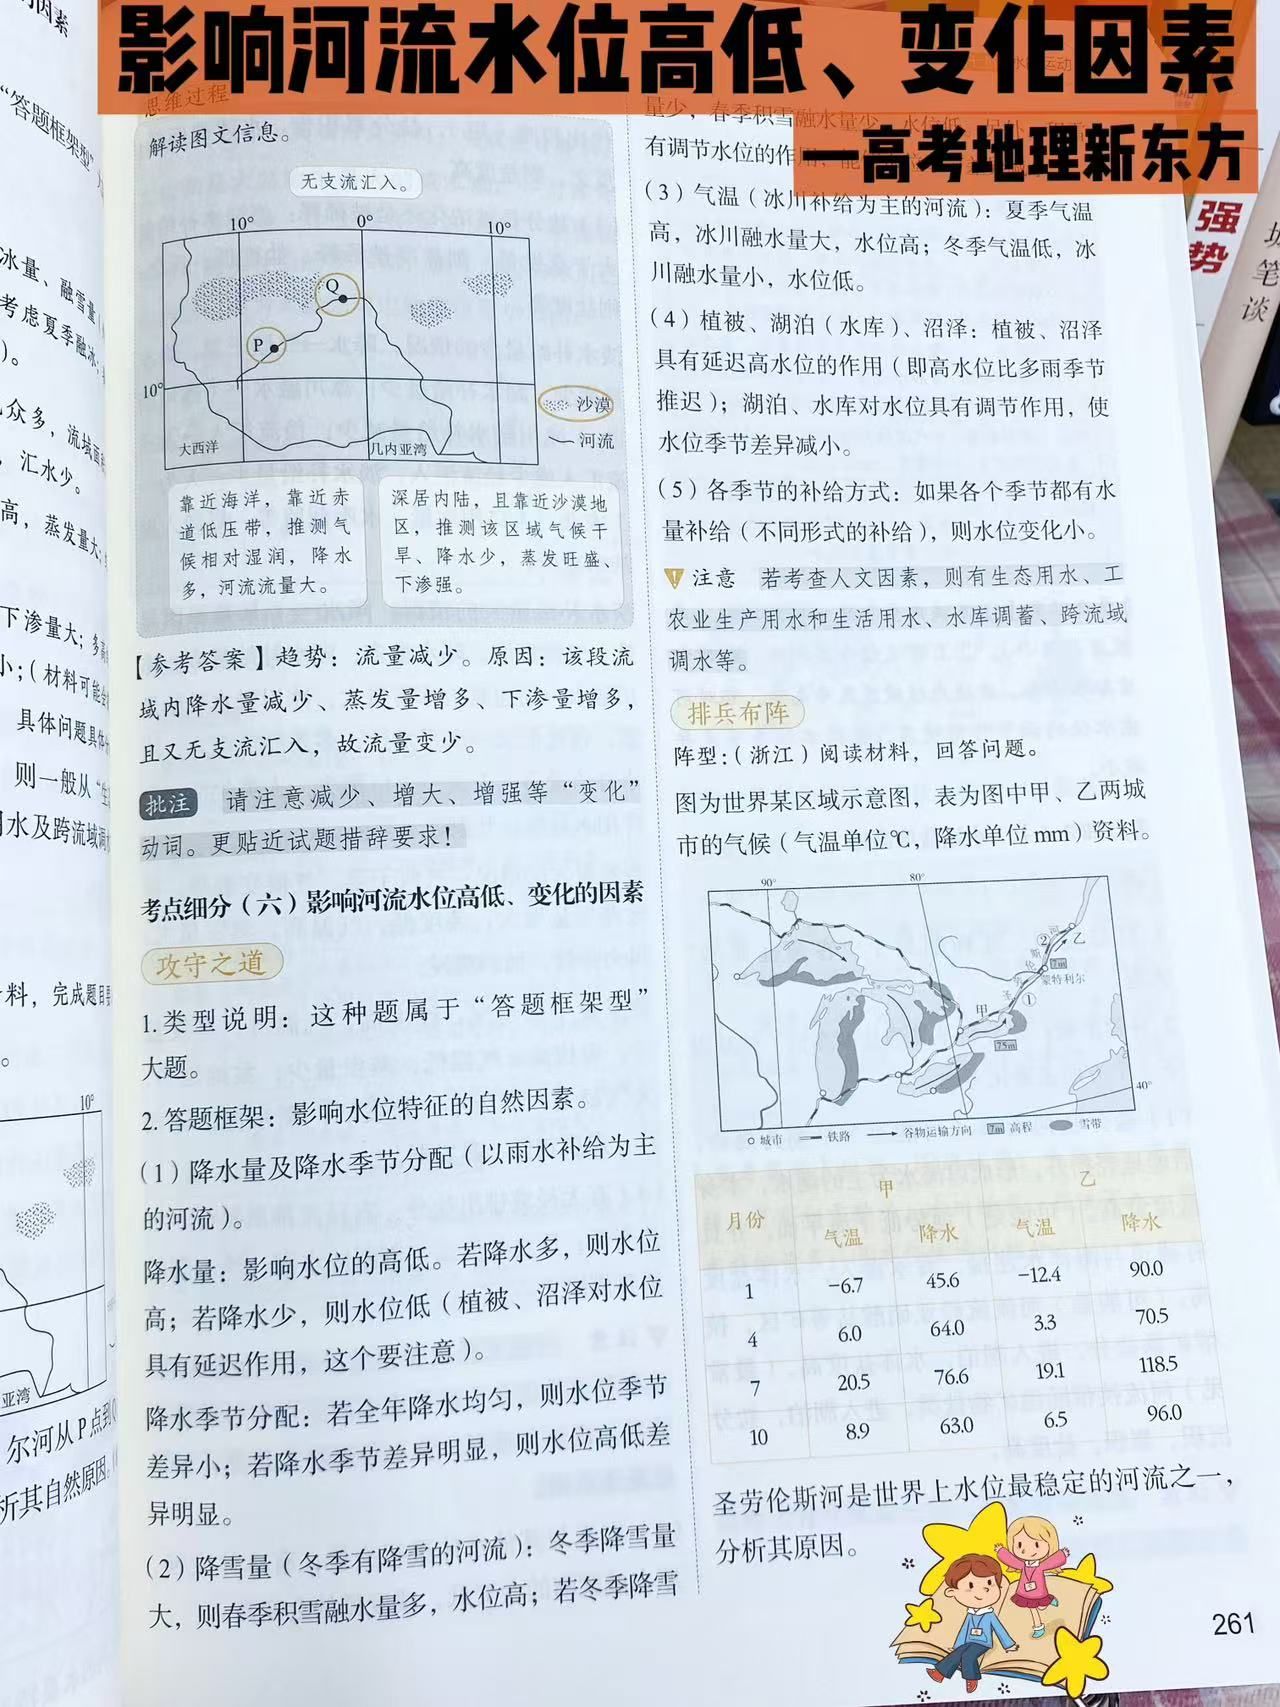 影响河流水位高低、变化因素
—高考地理新东方
思维过程
解读图文信息。
无支流汇入。
10° 0° 10°
Q
P
10°
沙漠
河流
大西洋
几内亚湾
靠近海洋，靠近赤
道低压带，推测气
候相对湿润，降水
多，河流流量大。
深居内陆，且靠近沙漠地
区，推测该区域气候干
旱、降水少，蒸发旺盛、
下渗强。
【参考答案】趋势：流量减少。原因：该段流
域内降水量减少、蒸发量增多、下渗量增多，
且又无支流汇入，故流量变少。
批注 请注意减少、增大、增强等“变化”
动词。更贴近试题措辞要求！
考点细分（六）影响河流水位高低、变化的因素
攻守之道
1.类型说明：这种题属于“答题框架型”
大题。
2.答题框架：影响水位特征的自然因素。
（1）降水量及降水季节分配（以雨水补给为主
的河流）。
降水量：影响水位的高低。若降水多，则水位
高；若降水少，则水位低（植被、沼泽对水位
具有延迟作用，这个要注意）。
降水季节分配：若全年降水均匀，则水位季节
差异小；若降水季节差异明显，则水位高低差
异明显。
（2）降雪量（冬季有降雪的河流）：冬季降雪量
大，则春季积雪融水量多，水位高；若冬季降雪
量少，春季积雪融水量少，水位低。
有调节水位的作用
（3）气温（冰川补给为主的河流）：夏季气温
高，冰川融水量大，水位高；冬季气温低，冰
川融水量小，水位低。
（4）植被、湖泊（水库）、沼泽：植被、沼泽
具有延迟高水位的作用（即高水位比多雨季节
推迟）；湖泊、水库对水位具有调节作用，使
水位季节差异减小。
（5）各季节的补给方式：如果各个季节都有水
量补给（不同形式的补给），则水位变化小。
注意 若考查人文因素，则有生态用水、工
农业生产用水和生活用水、水库调蓄、跨流域
调水等。
排兵布阵
阵型：（浙江）阅读材料，回答问题。
图为世界某区域示意图，表为图中甲、乙两城
市的气候（气温单位℃，降水单位mm）资料。
90° 80°
② 乙
7m
蒙特利尔
圣劳伦斯河
①
甲
75m
40°
城市 铁路 谷物运输方向 7m 高程 雪带
月份 甲 乙
气温 降水 气温 降水
1 -6.7 45.6 -12.4 90.0
4 6.0 64.0 3.3 70.5
7 20.5 76.6 19.1 118.5
10 8.9 63.0 6.5 96.0
圣劳伦斯河是世界上水位最稳定的河流之一，
分析其原因。
261
的因素
“答题框架型”
冰量、融雪量
考虑夏季融冰
）。
众多，流域面积
，汇水少。
高，蒸发量大
下渗量大；
小；（材料可能会
具体问题具体
则一般从“生
用水及跨流域调
料，完成题目
10°
亚湾
尔河从P点到
析其自然原因。
强
势
笔
谈